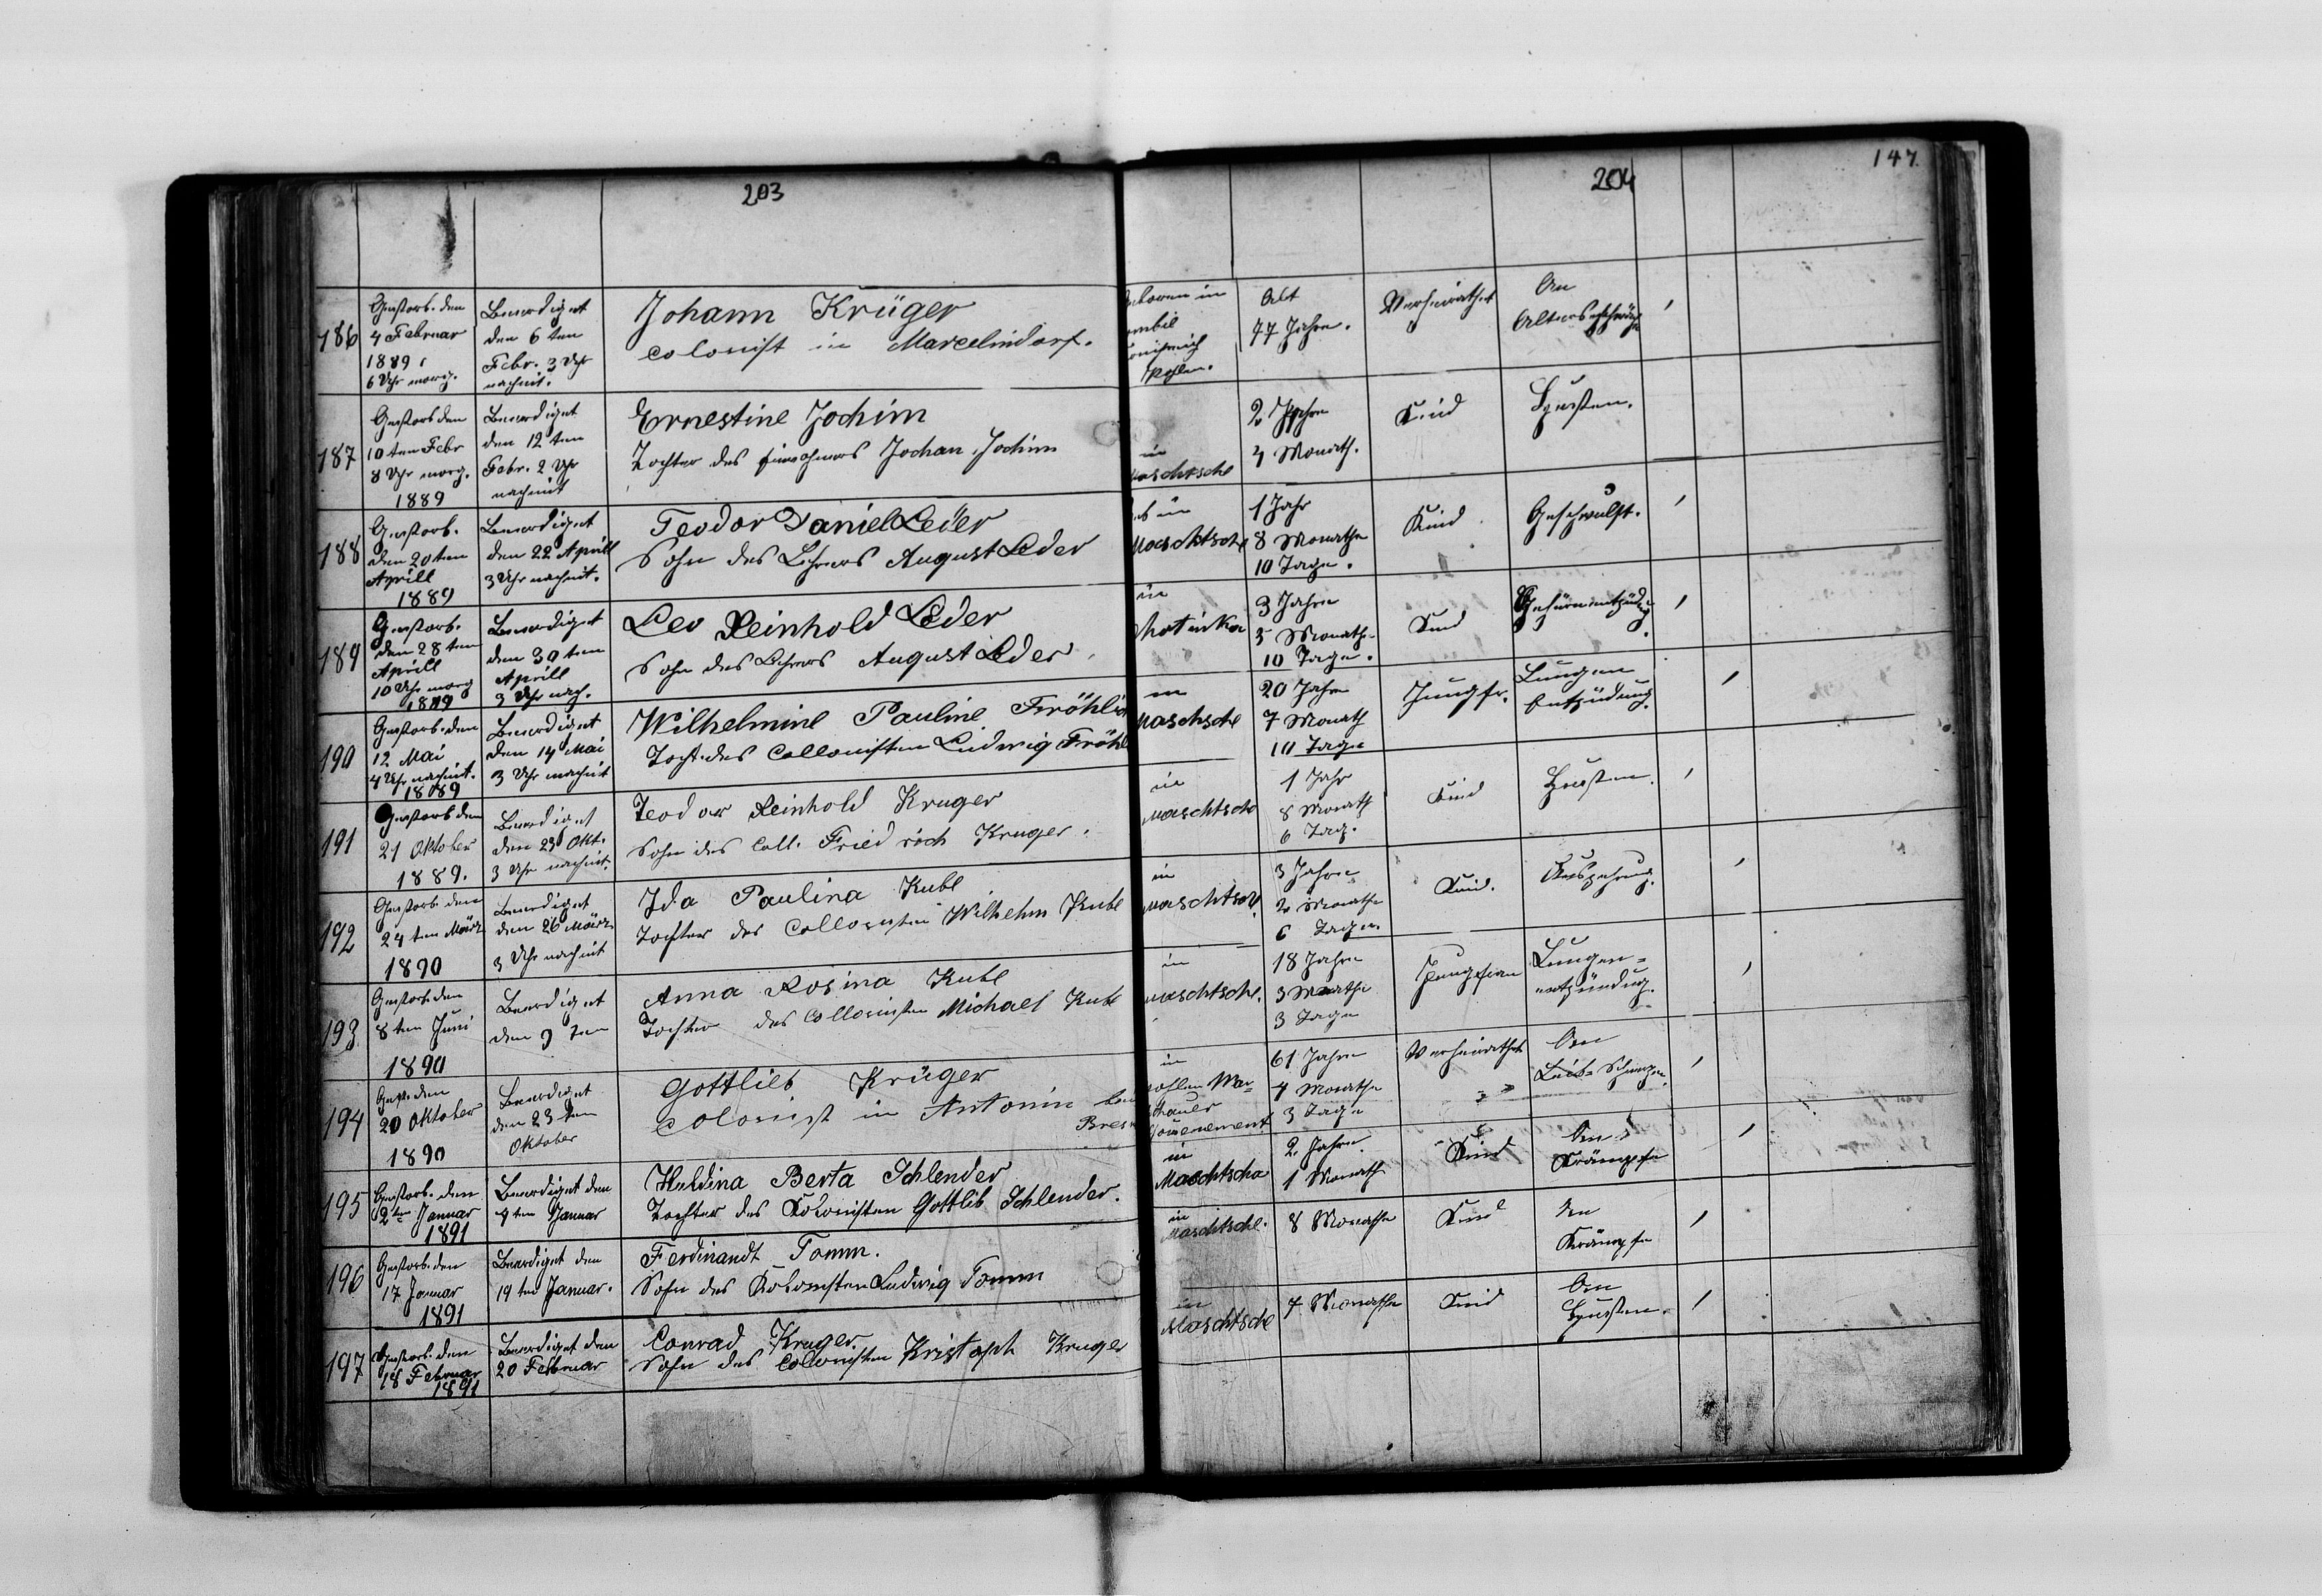 203
204
147.
186
Gestorb. den
4 Februar
1889
6 Uhr morg.
Beerdiget
den 6 ten
Febr. 3 Uhr
nachmit.
Johann Krüger
colonist in Marcelindorf.
Alt
77 Jahre.
Verheirathet
An
Altersschwäche
187
Gestorb den
10 ten Febr
8 Uhr morg.
1889
Beerdiget
den 12 ten
Febr. 2 Uhr
nachmit
Ernestine Jochim
Tochter des Einwohners Johan Jochim
in
Maschtsche
2 Jahre
4 Monath.
Kind
Husten.
188
Gestorb.
den 20 ten
Aprill
1889
Beerdiget
den 22 Aprill
3 Uhr nachmit.
Teodor Daniel Leder
Sohn des Lehrers August Leder
in
Maschtsche
1 Jahr
8 Monathe
10 Tage.
Kind
Geschwulst.
189
Gestorb.
den 28 ten
Aprill
10 Uhr morg
1889
Beerdiget
den 30 ten
Aprill
3 Uhr nach.
Leo Reinhold Leder
Sohn des Lehrers August Leder
in
3 Jahre
5 Monathe
10 Tage.
Kind
190
Gestorb. den
12 Mai
4 Uhr nachmit.
1889
Beerdiget
den 14 Mai
3 Uhr nachmit
Wilhelmine Pauline Fröhlich
Toch. des Collonisten Ludwig Fröhl
in
Maschsche
20 Jahre
7 Monath
10 Tage
Jungfr.
Lungen
Entzüdung.
191
Gestorb den
21 Oktober
1889.
Beerdiget
den 23 Okt.
3 Uhr nachmit.
Teodor Reinhold Kruger
Sohn des Coll. Friedrich Kruger.
in
Maschtsche
1 Jahr
8 Monath
6 Tag.
Kind
Husten.
192
Gestorb. den
24 ten März
1890
Beerdiget
den 26 März
3 Uhr nachmit
Ida Paulina Kubl
Tochter des Collonisten Wilhelm Kubl
in
Maschtsch.
3 Jahre
2 Monathe
6 Tage.
Kind.
Auszehrung.
193
Gestorb. den
8 ten Juni
1890
Beerdiget
den 9 ten
Anna Rosina Kubl
Tochter des Collonisten Michael Kubl
in
Maschtsche.
18 Jahre
3 Monathe
3 Tage
Jungfrau
Lungen=
entzündug.
194
Gest. den
20 Oktober
1890
Beerdiget
den 23 ten
Oktober
Gottlieb Krüger
Colonist in Antonin
in
Pohlen War=
schauer
Gouvernement
61 Jahre
4 Monathe
3 Tage
Verheirathet
An
Leib=Schmerzen.
195
Gestorb. den
2ten Januar
1891
Beerdiget den
4 ten Januar
Huldina Berta Schlender
Tochter des Kolonisten Gottlib Schlender.
in
Maschtscha
2 Jahre
1 Monath
Kind
An
Krämpfe
196
Gestorb. den
17 Januar
1891
Beerdiget den
19 ten Januar.
Ferdinandt Tomm.
Sohn des Kolonisten Ludwig Tomm
in
Maschtsche.
8 Monathe
Kind
An
Krämpfe
197
Gestorb. den
18 Februar
1891
Beerdiget den
20 Februar
Conrad Kruger.
Sohn des Colonisten Kristoph Kruger
in
Maschtsche
7 Monathe
Kind
An
Husten.